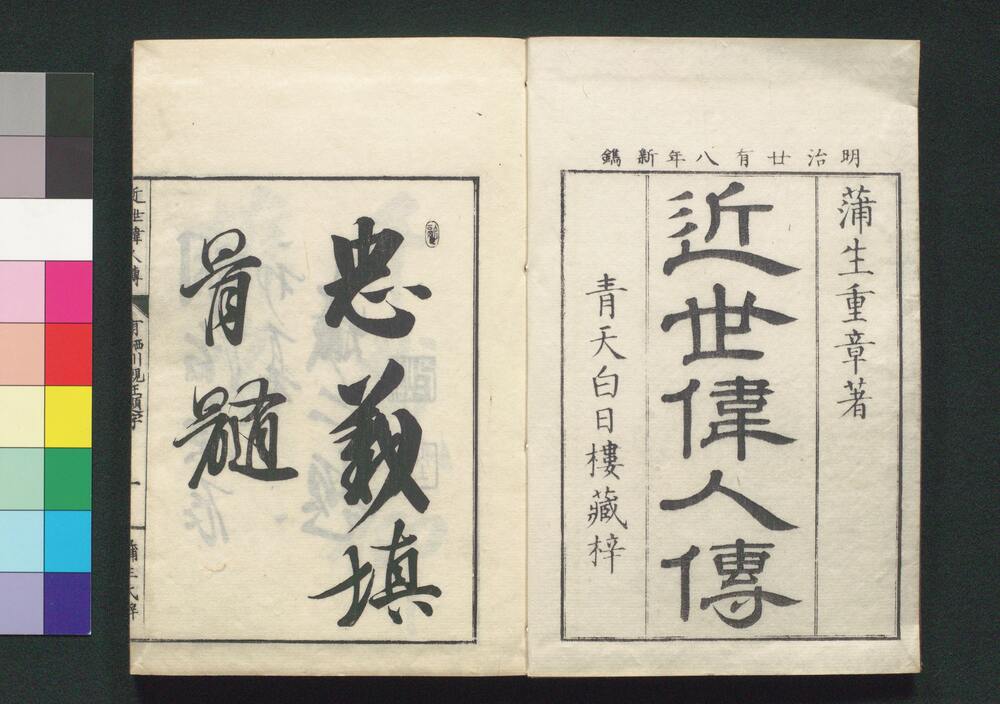 明治廿有八年新鐫
蒲生重章著
近世偉人傳
青天白日樓藏梓
忠義填
骨髓
近世偉人傳
有栖川親王題字
一
蒲生氏梓